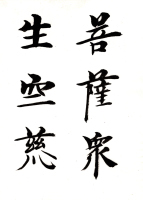 菩薩衆
生空慈